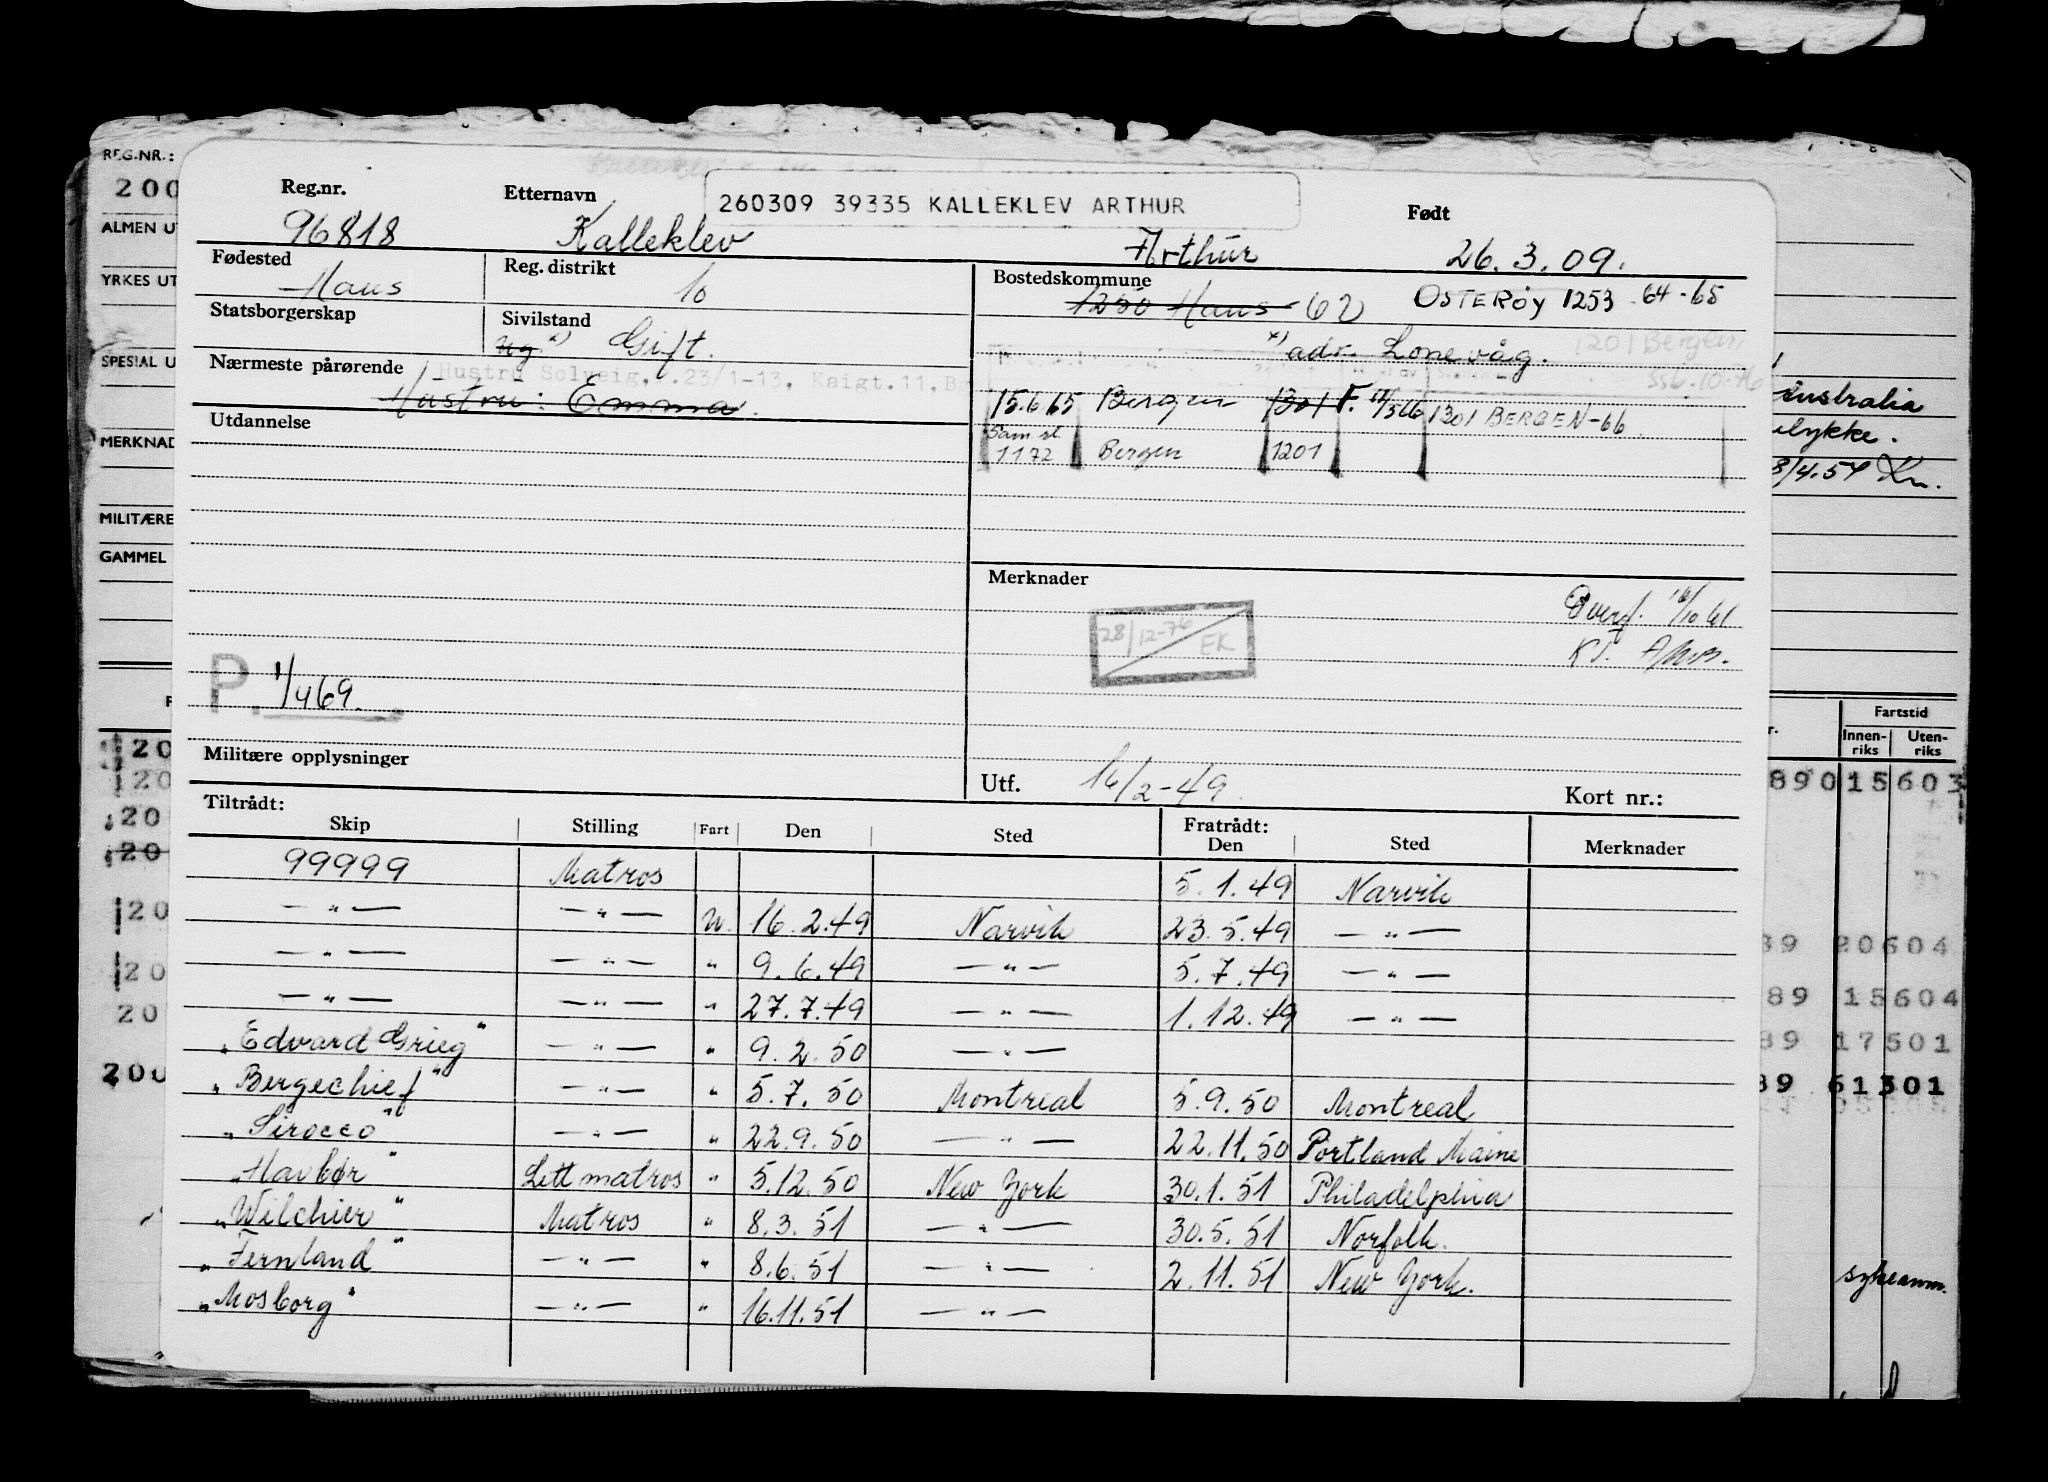 REG.NR.:
200
ALMEN UT
YRKES UT
SPESIAL U
MERKNAD
MILITÆRE
GAMMEL
Reg.nr.
96818
Etternavn
Kalleklev
260309 39335 KALLEKLEV ARTHUR
Arthur
Født
26.3.09.
Fødested
Haus
Reg. distrikt
10
Bostedskommune
1250 Haus 62 OSTERØY 1253 64-65
Statsborgerskap
Sivilstand
Ug. x) Gift.
x) adr. Lonevåg. 1201 Bergen,
Nærmeste pårørende
Hustru Solveig, .23/1-13, Kaigt.11, B
Hustru: Emma.
556.10-76
15.6 65 Bergen 1301 F. 1301 BERGEN-66
1172 Bergen 1201
Utdannelse
ustralia
ulykke.
8/4.54 Kn.
Merknader
Overf. 10 61
28/12-76 EK
P. 1/469.
Militære opplysninger
Utf. 16/2-49
Kort nr.:
Fartstid
Innen-riks Uten-riks
Tiltrådt:
Skip Stilling Fart Den Sted Fratrådt: Den Sted Merknader
99999 Matros 5.1.49 Narvik
—"— —"— U. 16.2.49 Narvik 23.5.49 —"—
—"— —"— " 9.6.49 —"— 5.7.49 —"—
—"— —"— " 27.7.49 —"— 1.12.49 —"—
"Edvard Grieg" —"— " 9.2.50 —"—
"Bergechief" —"— " 5.7.50 Montreal 5.9.50 Montreal
"Sirocco" —"— " 22.9.50 —"— 22.11.50 Portland Maine
"Havbør" Lettmatros " 5.12.50 New York 30.1.51 Philadelphia
"Wilchier" Matros " 8.3.51 —"— 30.5.51 Norfolk.
"Fernland" —"— " 8.6.51 —"— 2.11.51 New York.
"Mosborg" —"— " 16.11.51 —"—
89015603
89 20604
89 15604
89 17501
89 61301
200